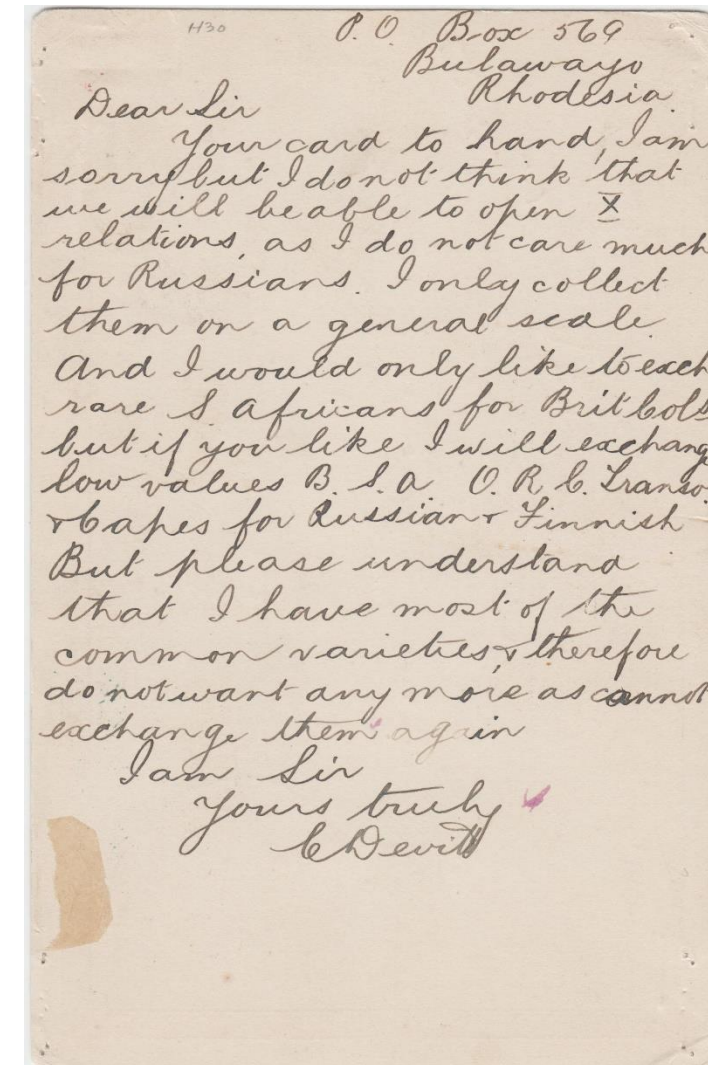 H30
P. O. Box 569
Bulawayo
Rhodesia.
Dear Sir
Your card to hand, I am
sorry but I do not think that
we will be able to open X
relations, as I do not care much
for Russians. I only collect
them on a general scale.
And I would only like to exch
rare S. Africans for Brit Cols
but if you like I will exchange
low values B. S. A O. R. C. Transv.
& Capes for Russian & Finnish
But please understand
that I have most of the
common varieties, & therefore
do not want any more as cannot
exchange them again
I am Sir
Yours truly
C Devitt